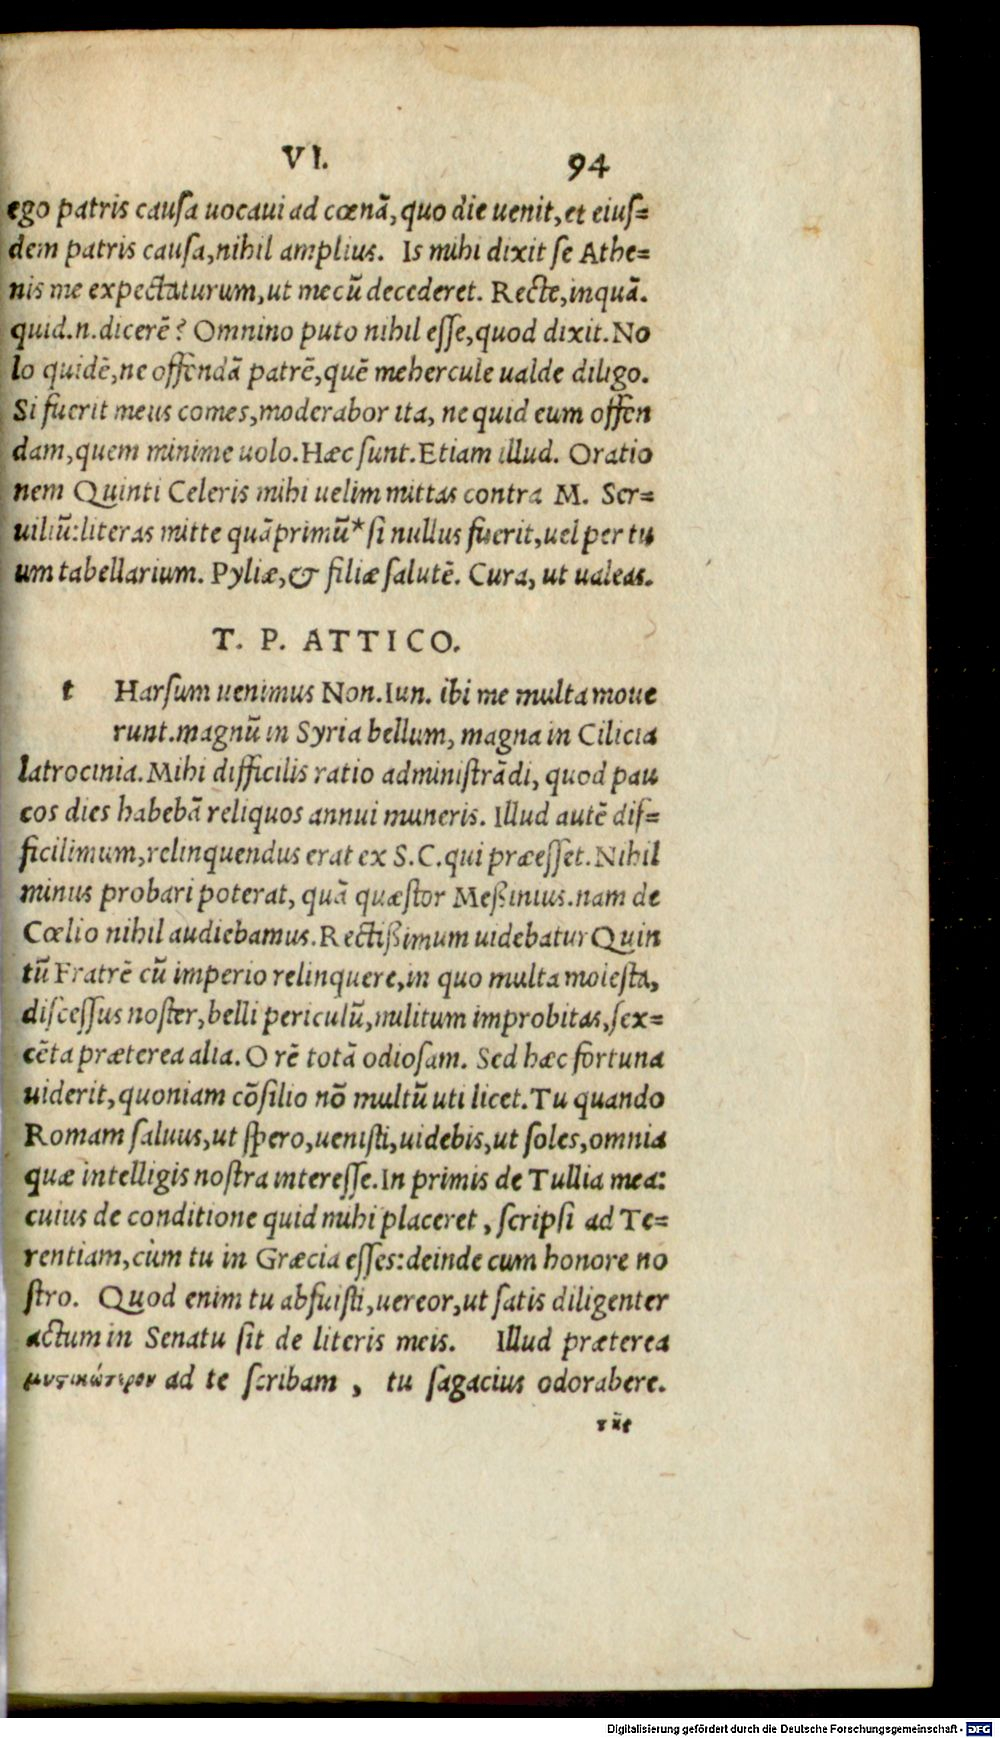 VI. 94
ego patris cauſa uocaui ad cœnã, quo die uenit, et eiuſ=
dem patris cauſa, nihil amplius. Is mihi dixit ſe Athe=
nis me expectaturum, ut mecũ decederet. Recte, inquã.
quid.n.dicerẽ? Omnino puto nihil eſſe, quod dixit. No
lo quidẽ, ne offendã patrẽ, quẽ mehercule ualde diligo.
Si fuerit meus comes, moderabor ita, ne quid eum offen
dam, quem minime uolo. Hæc ſunt. Etiam illud. Oratio
nem Quinti Celeris mihi uelim mittas contra M. Ser=
uiliũ: literas mitte quãprimũ* ſi nullus fuerit, uel per tu
um tabellarium. Pyliæ, & filiæ ſalutẽ. Cura, ut ualeas.
T. P. ATTICO.
t Harſum uenimus Non. Iun. ibi me multa moue
runt. magnũ in Syria bellum, magna in Cilicia
latrocinia. Mihi difficilis ratio adminiſtrãdi, quod pau
cos dies habebã reliquos annui muneris. Illud autẽ dif=
ficilimum, relinquendus erat ex S.C. qui præeſſet. Nihil
minus probari poterat, quã quæſtor Meßinius. nam de
Cœlio nihil audiebamus. Rectißimum uidebatur Quin
tũ Fratrẽ cũ imperio relinquere, in quo multa moleſta,
diſceſſus noſter, belli periculũ, militum improbitas, ſex=
cẽta præterea alia. O rẽ totã odioſam. Sed hæc fortuna
uiderit, quoniam cõſilio nõ multũ uti licet. Tu quando
Romam ſaluus, ut ſpero, ueniſti, uidebis, ut ſoles, omnia
quæ intelligis noſtra intereſſe. In primis de Tullia mea:
cuius de conditione quid mihi placeret, ſcripſi ad Te=
rentiam, cùm tu in Græcia eſſes: deinde cum honore no
ſtro. Quod enim tu abfuiſti, uereor, ut ſatis diligenter
actum in Senatu ſit de literis meis. Illud præterea
μυςικώτερον ad te ſcribam, tu ſagacius odorabere.
Digitalisierung gefördert durch die Deutsche Forschungsgemeinschaft - DFG